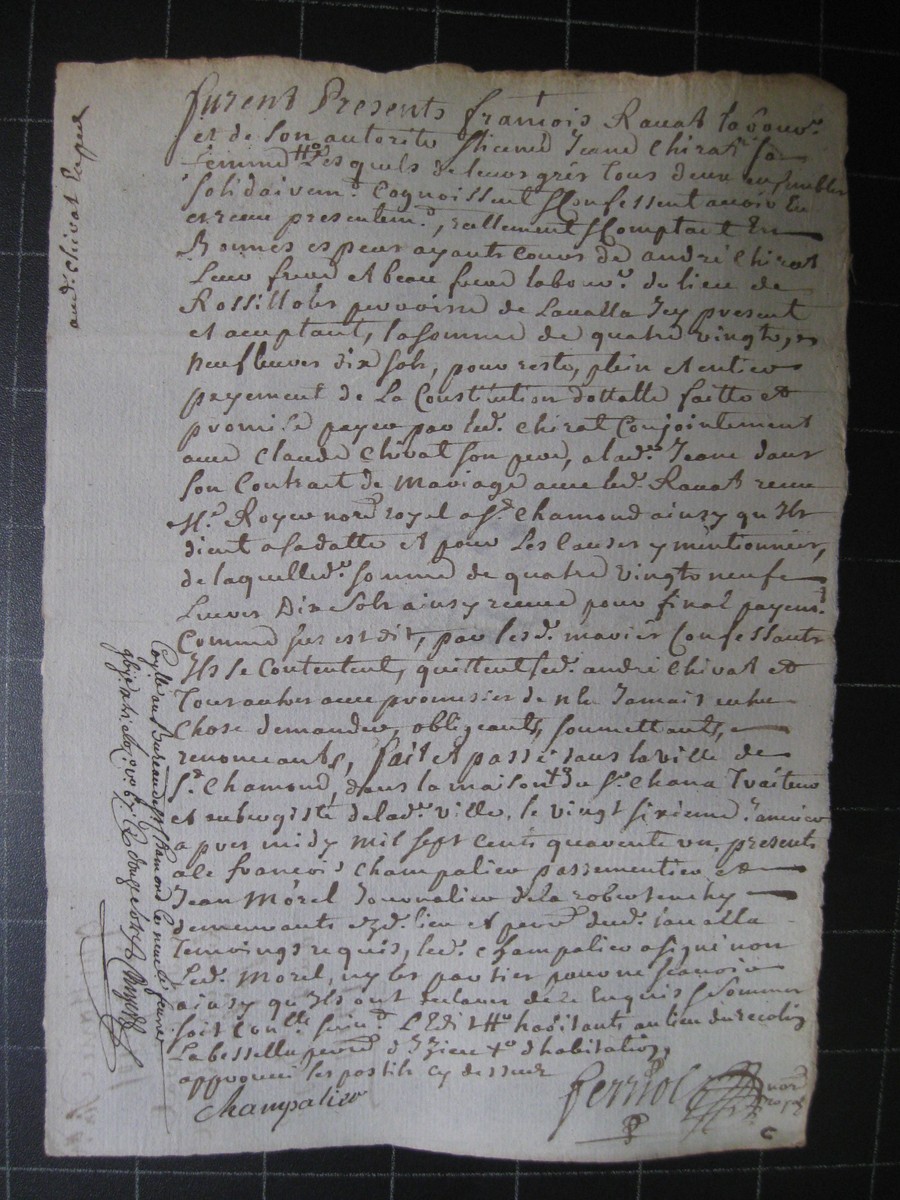 furent Presents françois Ravat labour.
et de son autorité licenciée Jeane Chirat sa
femme H.o lesquels de leurs grés tous deux ensembles
solidairem.t Cognoissent & Confessent avoir Eu
et receu presentem.t, reellement & Comptant En
Bonnes especes ayants cours de andré Chirat
Leur frere et beau frere labour. du lieu de
Rossilloles parroisse de Lavalla Icy present
et aceptant, la somme de quatre vingts, et
neuf livres dix sols, pour reste, plein et entier
payement de La Constitution dottalle faitte et
promise payer par led. Chirat Conjointement
avec Claude Chirat son pere, a lad. Jeane dans
son Contract de mariage avec led. Ravat receu
M.e Royer no.re royal a S.t Chamond ainsy qu'Ils
dient a sa datte et pour Les Causes y mentionnées,
de laquelle d. somme de quatre vingts neufs
Livres Dix sols ainsy receue pour final payem.t
Comme sus est dit, par lesd. mariés Confessants
Ils se Contentent, quittent led. andré Chirat et
tous autres avec promesse de ne leur Jamais autre
Chose demander, obligeants, soumettants,
renonceants, fait et passé dans la ville de
S.t Chamond, dans la maison du S.r Chana traiteur
et aubergiste de lad. ville, le vingt sixieme Janvier
apres midy mil sept cents quarente un, presents
à ce françois Champalier passementier et
Jean Morel Journalier de la
demeurants esd. lieu et parr.e dud. Lavalla
temoings requis, led. Champalier a signé non
Led. Morel, ny les parties pour ne sçavoir
ainsy qu'Ils ont declaré de ce Enquis & Sommés
soit Con.llé suiv.t L'Edit H.o habitants au lieu du
La bessellu parr.e d'Izieu +.o d'habitation,
approuvé les postils cy dessus
Champalier
ferriol
no.re
royal
and. Chirat
Con.llé au Bureau de S.t Chamond le neuf fevrier